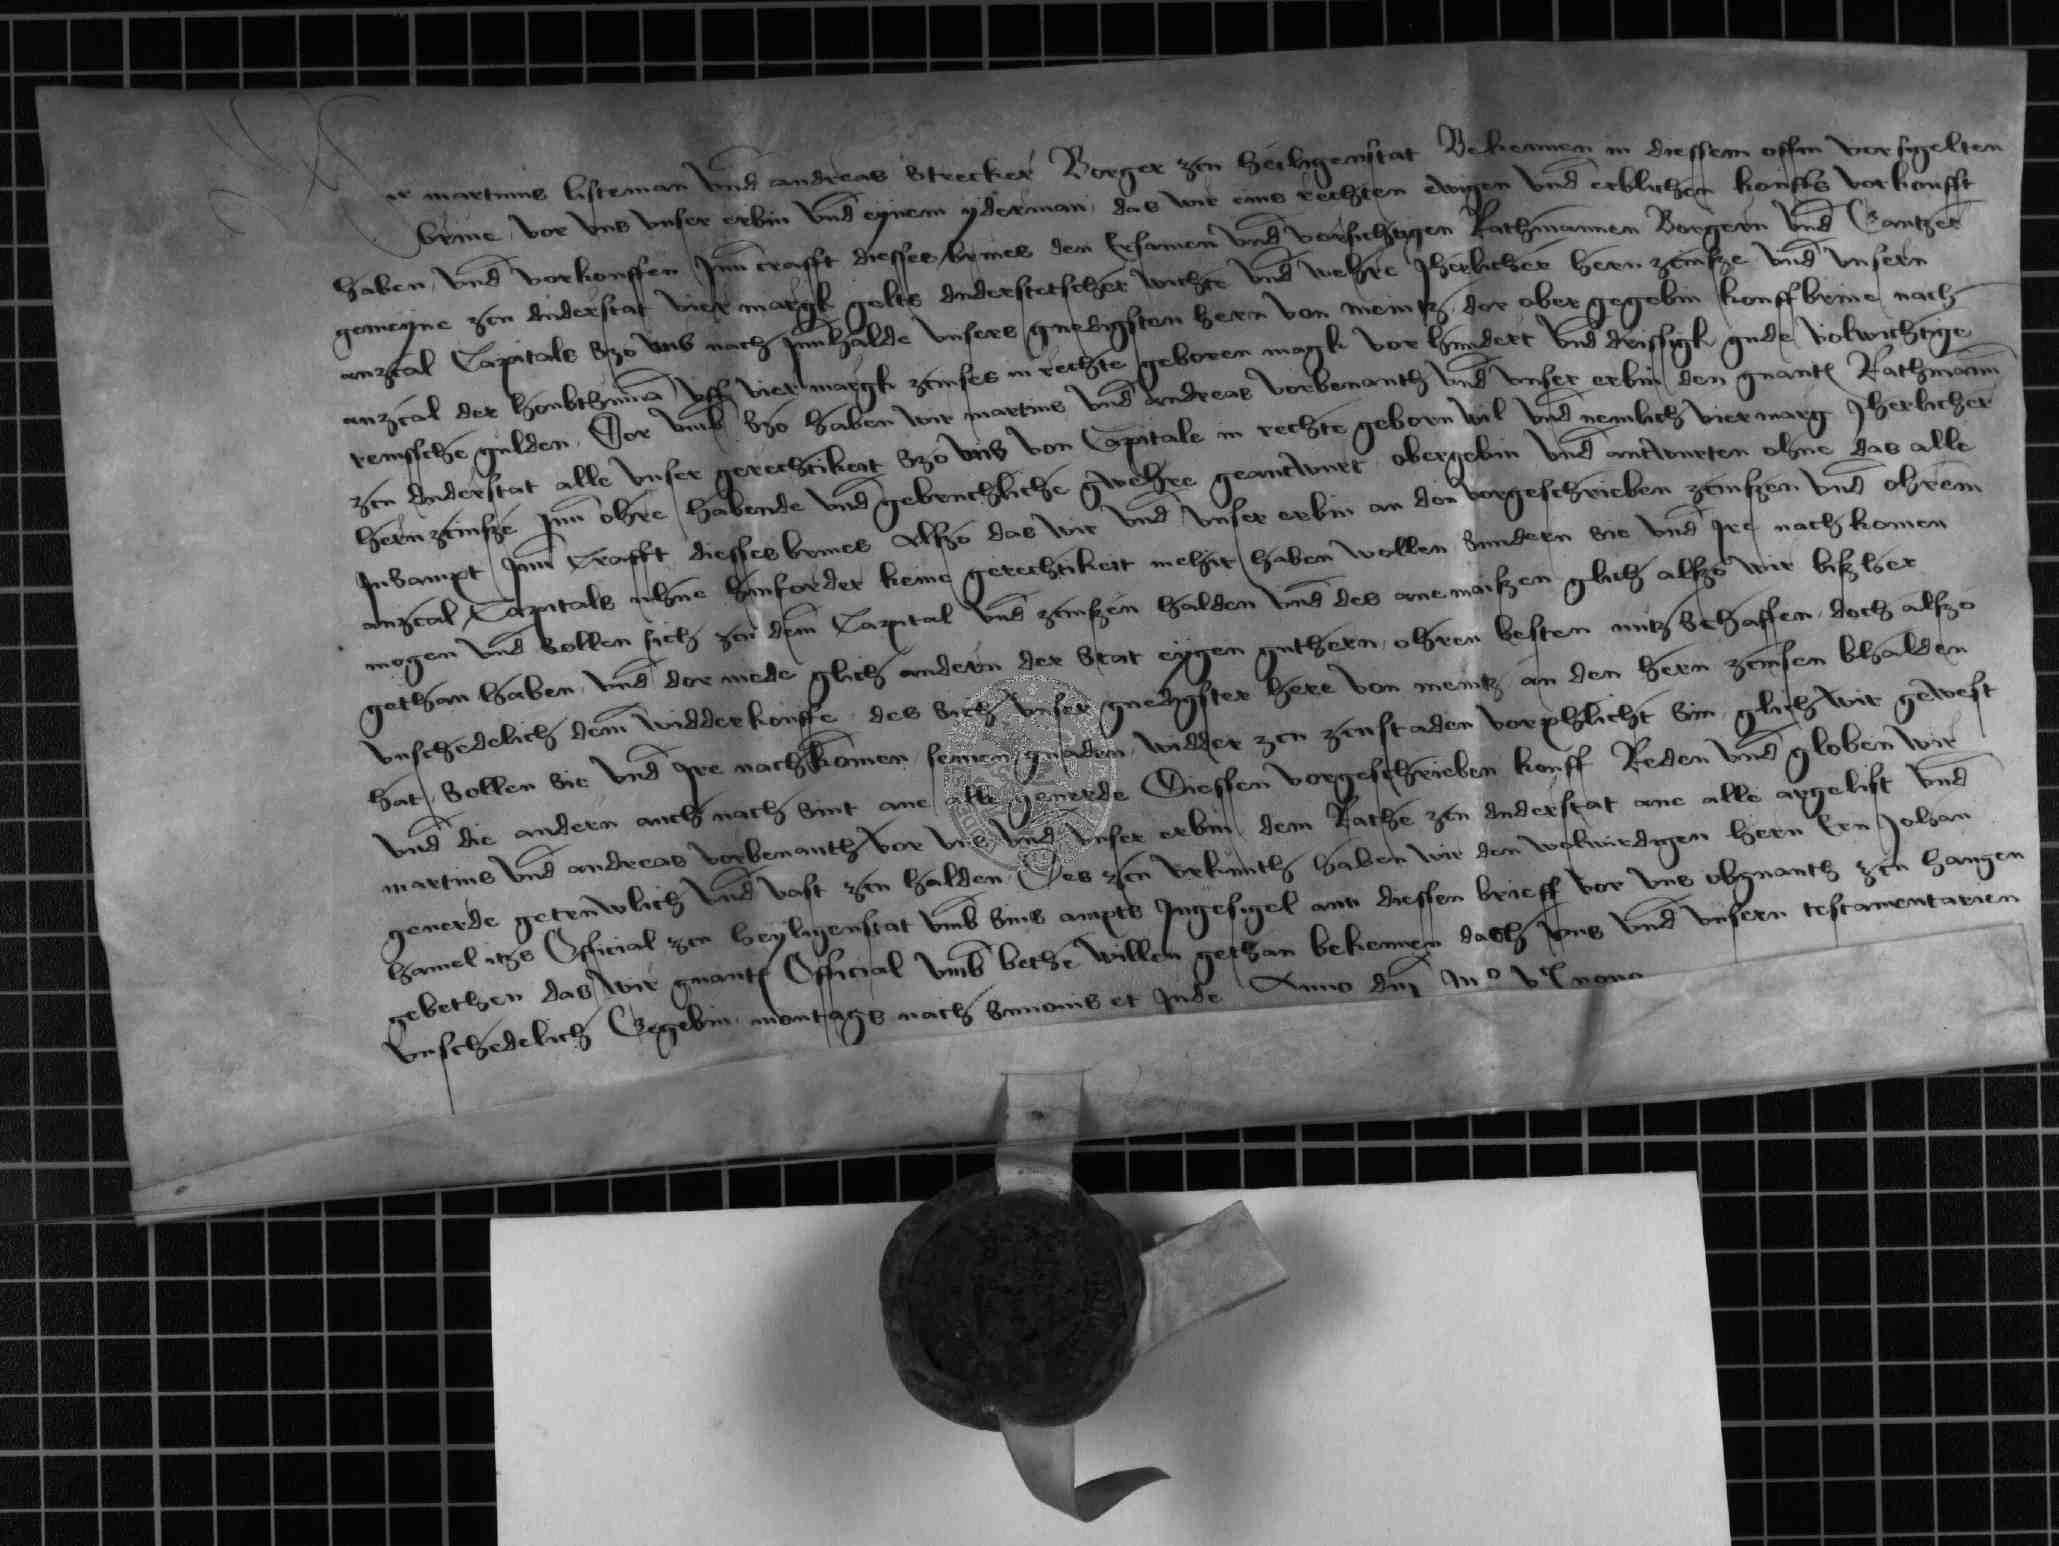 Wir martinus listeman vnd andreas Strecker Borger zcu heiligenstat Bekennen in diessem offin vorsigelten
brieue vor vns vnser erbin vnd eynem yderman das wir eins rechten ewigen vnd erblichen kouffs vorkoufft
haben vnd vorkouffen Inn crafft diesses brieues den Ersamen vnd vorsichtigen Rathmannen Borgern vnd Gantzer
gemeyne zcu duderstat vier margk gelts duderstetscher wichte vnd wehre Jherlicher hern zcinsze vnd vnsern
anzcal Capitals Szo vns nach Innhalde vnsers gnedigsten hern von meintz dor ober gegebin kouffbrieue nach
anzcal der houbtsumma vff vier margk zcinses in rechte geboren magk vor hundert vnd drissigk gude volwichtige
reinssche gulden Dor vmb Szo haben wir martins vnd andreas vorbenanth vnd vnser erbin den gnanten Rathmann
zcu duderstat alle vnser gerechtikeit Szo vns von Capitale in rechte geborn wil vnd nemlich vier marg Jherlicher
hern zcinsze Inn ohre habende vnd gebruchliche gwehre geantwurt obergebin vnd antwurten ohne das alle
Insampt Inn Crafft diesses brieues Alszo das wir vnd vnser erbin an den vorgeschrieben zcinszen vnd ohrem
anzcal Capitals nhue hinforder keine gerechtikeit mehir haben wollen Sundern Sie vnd Jre nachkomen
mogen vnd Sollen sich zcu dem Capital vnd zcinszen halden vnd des ane maiszen glich alszo wir biszher
gethan haben vnd dor mede glich andern der Stat eygen guthern ohren besten nutz Schaffen doch alszo
vnschedelich dem widderkouffe des Sich vnser gnedigster here von meintz an den hern zcinsen bhalden
hat Sollen Sie vnd Jre nachkomen seinen gnaden widder zcu zcustaden vorphlicht Sin glich wir gewest
vnd die andern auch nach Sint ane alle geuerde Diessen vorgeschrieben kouff Reden vnd globen wir
martins vnd andreas vorbenanth vor vns vnd vnser erbin dem Rathe zcu duderstat ane alle argelist vnd
geuerde getruwlich vnd vast zcu halden Des zcu vrkunth haben wir den wolwirdigen hern Ern Johan
hamel itzs Official zcu heyligenstat vmb Sins ampts Ingesigel ann diessen brieff vor vns obgnanth zcu hangen
gebethen das wir gnanter Official vmb bethe willen gethan bekennen dach vns vnd vnsern testamentarien
vnschedelich Gegebin montags nach Simonis et Jude Anno dni Mo Vc nono